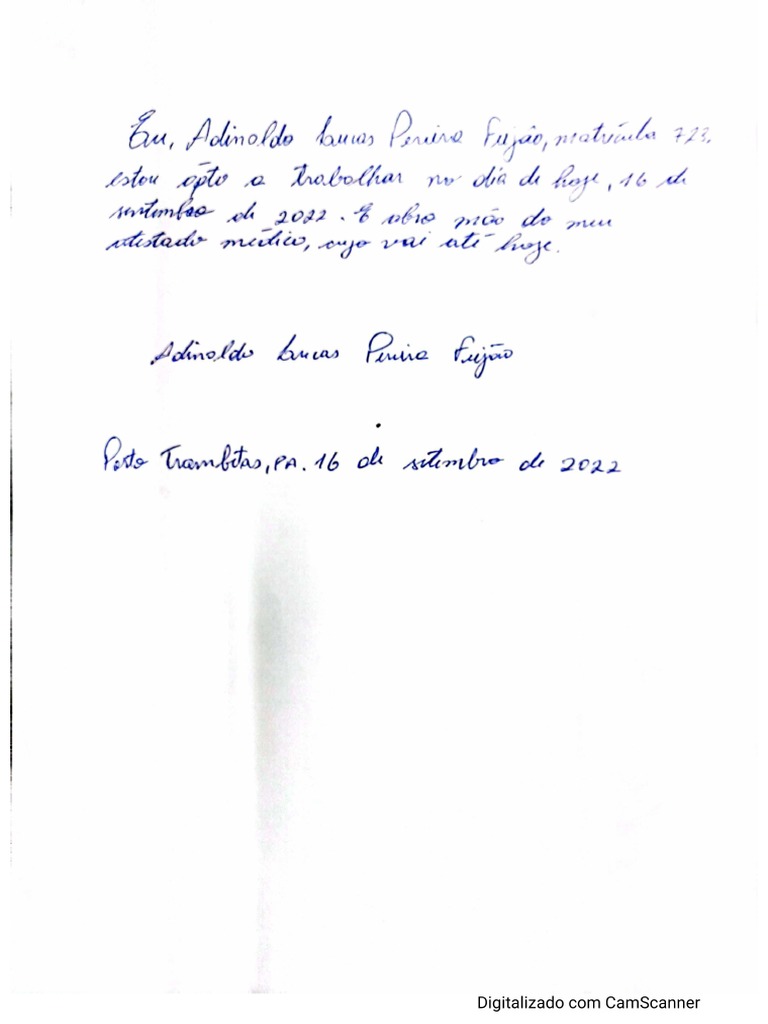 Eu, Adinaldo Lucas Pereira Feijão, matrícula 723,
estou ápto a trabalhar no dia de hoje, 16 de
setembro de 2022. E abro mão do meu
atestado médico, cujo vai até hoje.
Adinaldo Lucas Pereira Feijão
Porto Trombetas, PA. 16 de setembro de 2022
Digitalizado com CamScanner